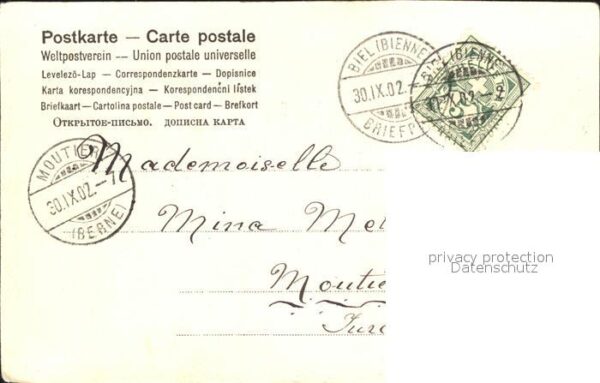 Postkarte — Carte postale
Weltpostverein — Union postale universelle
Levelező-Lap — Correspondenzkarte — Dopisnice
Karta korespondencyjna — Korespondenční lístek
Briefkaart — Cartolina postale — Post card — Brefkort
Открытое-письмо. дописна карта
BIEL (BIENNE)
30.IX.02.
BRIEFP
BIEL (BIENNE)
MOUTIER
30.IX.02.-7
(BERNE)
Mademoiselle
Mina Me
Moutie
Jura
privacy protection
Datenschutz